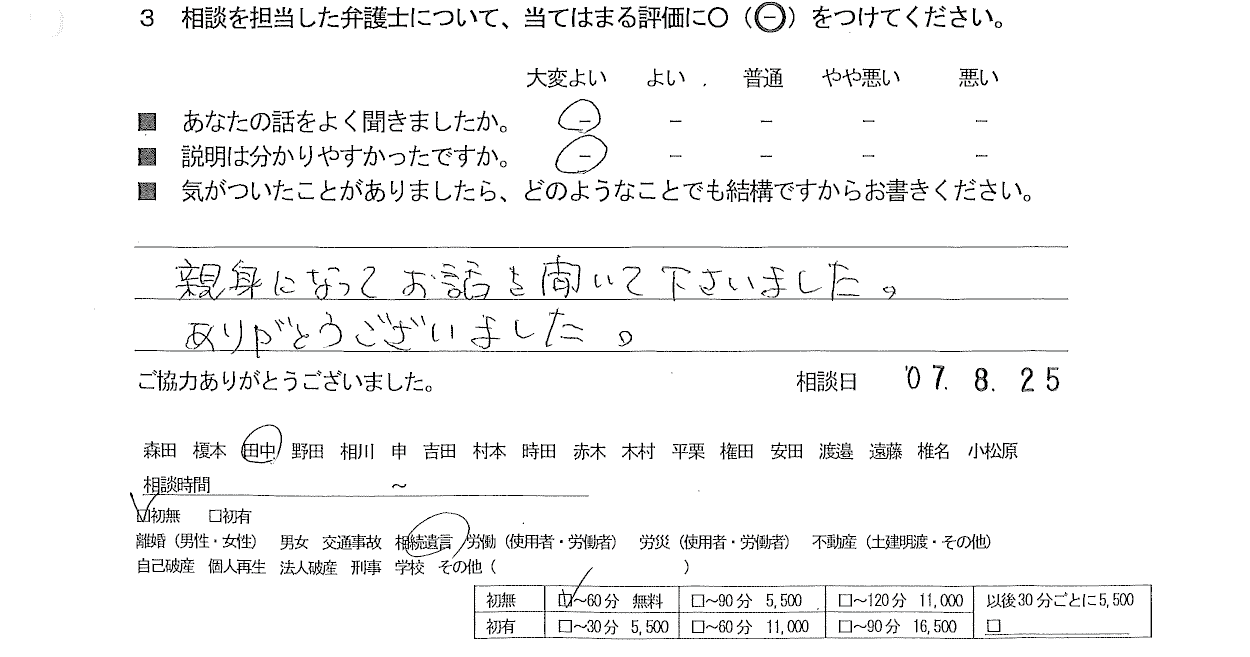 3 相談を担当した弁護士について、当てはまる評価に○（㊀）をつけてください。
大変よい よい 普通 やや悪い 悪い
■ あなたの話をよく聞きましたか。 － － － － －
■ 説明は分かりやすかったですか。 － － － － －
■ 気がついたことがありましたら、どのようなことでも結構ですからお書きください。
親身になってお話を聞いて下さいました。
ありがとうございました。
ご協力ありがとうございました。 相談日 '07. 8. 25
森田 榎本 田中 野田 相川 申 吉田 村本 時田 赤木 木村 平栗 権田 安田 渡邉 遠藤 椎名 小松原
相談時間 ～
☑初無 □初有
離婚（男性・女性） 男女 交通事故 相続遺言 労働（使用者・労働者） 労災（使用者・労働者） 不動産（土建明渡・その他）
自己破産 個人再生 法人破産 刑事 学校 その他（ ）
初無 ☑～60分 無料 □～90分 5,500 □～120分 11,000 以後30分ごとに5,500
初有 □～30分 5,500 □～60分 11,000 □～90分 16,500 □